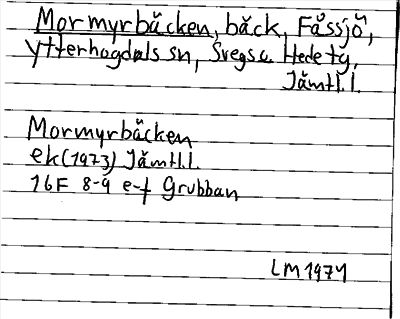 Mormyrbäcken, bäck, Fåssjö,
Ytterhogdals sn, Svegs o. Hede tg,
Jämtl.l.
Mormyrbäcken
ek (1973) Jämtl.l.
16F 8-9 e-f Grubban
LM 1974